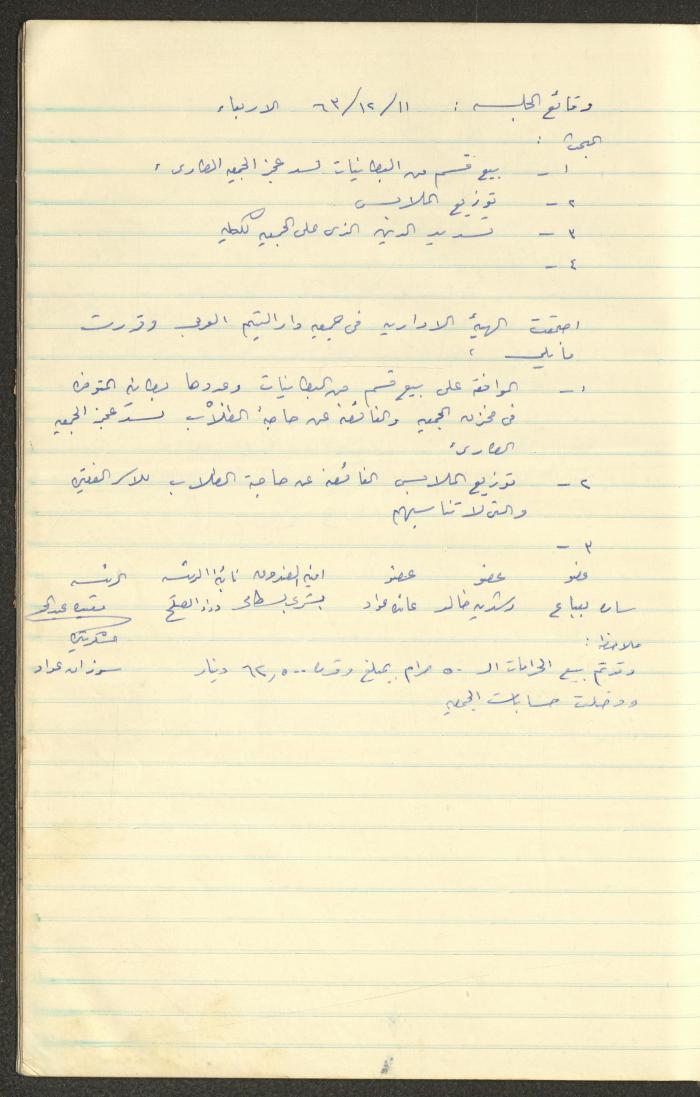 وقائع الجلسه : ١١/١٢/٦٣ الاربعاء
البحث :
١ - بيع قسم من البطانيات لسد عجز الجمعيه الطارىء
٢ - توزيع الملابس
٣ - تسديد الدين الذى على الجمعيه
٤ -
اجتمعت الهيئة الاداريه فى جمعيه دار اليتيم العربى وقررت
ما يلى :
١ - الموافقة على بيع قسم من البطانيات وعددها بطانيه المتوفره
فى مخزن الجمعيه والفائضه عن حاجة الطلاب لسد عجز الجمعيه
الطارىء
٢ - توزيع الملابس الفائضه عن حاجة الطلاب للاسر الفقيره
والتى لا تناسبهم
٣ -
عضو عضو عضو امينة الصندوق نائبة الرئيسه الرئيسه
ساره بيباع خالد عائده عواد بشرى
ملاحظه :
وقد تم بيع الحرامات الـ ٥٠ حرام بمبلغ وقدره ٦٢,٥٠٠ دينار سوزان عواد
ودخلت حسابات الجمعيه